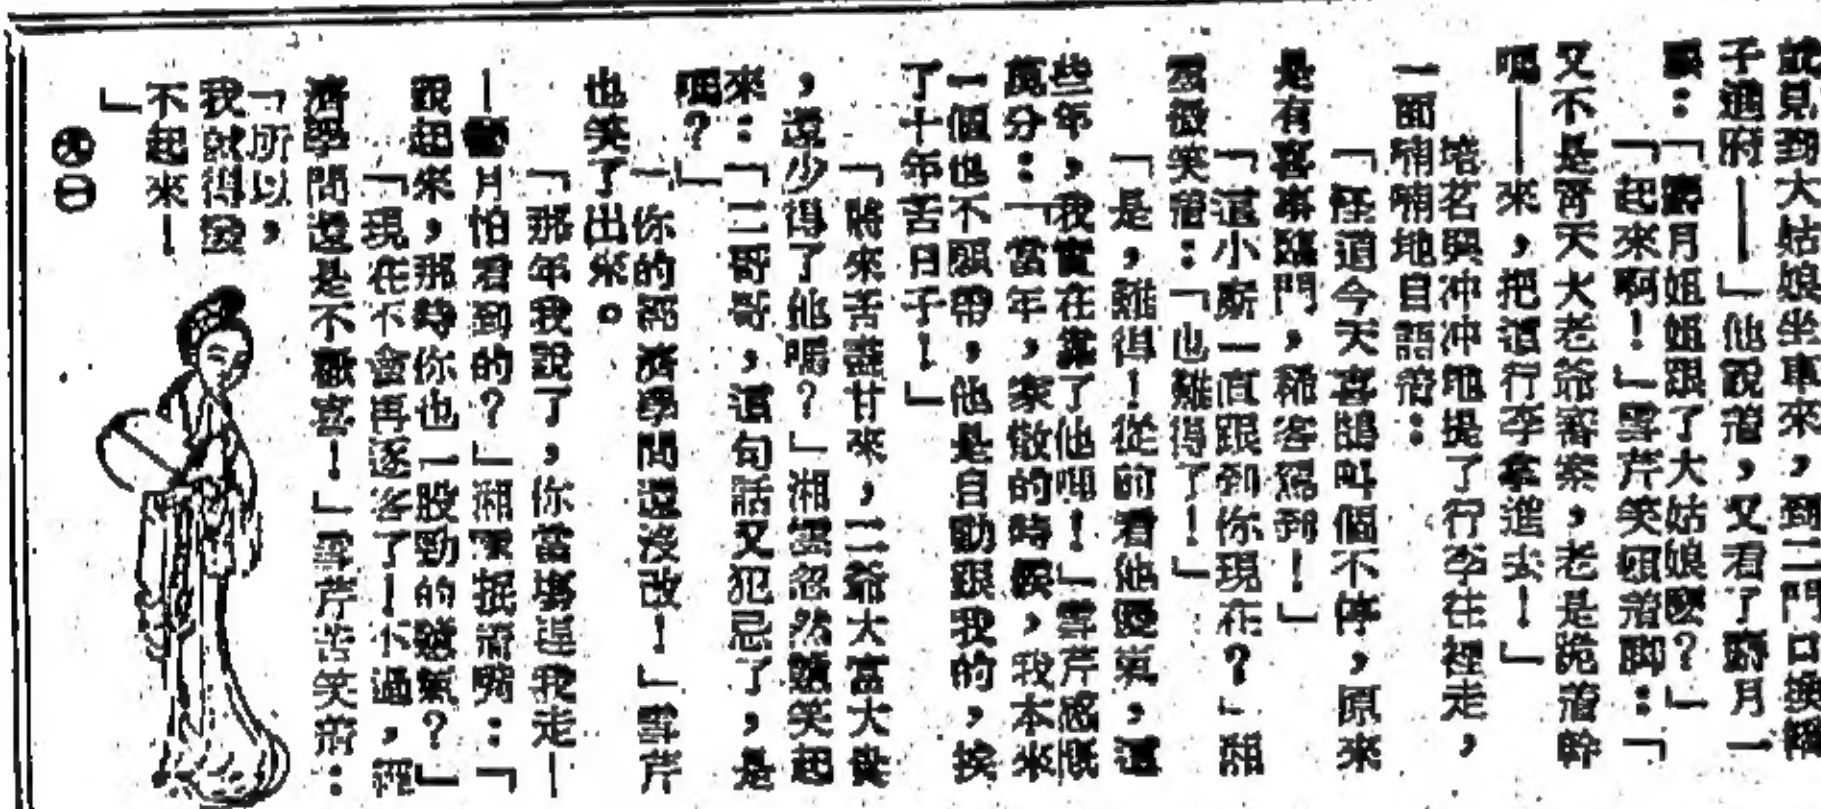 就見到大姑娘坐車來，到二門口換轎
子進府——」他說着，又看了麝月一
眼：「麝月姐姐跟了大姑娘麼？」
「起來啊！」雪芹笑頓着脚：「
又不是靑天大老爺審案，老是跪着幹
嗎——來，把這行李拿進去！」
焙茗興冲冲地提了行李往裡走，
一面喃喃地自語着：
「怪道今天喜鵲叫個不停，原來
是有喜事臨門，稀客駕到！」
「這小廝一直跟到你現在？」湘
雲微笑着：「也難得了！」
「是，難得！從前看他優氣，這
些年，我實在靠了他呵！」雪芹感慨
萬分：「當年，家散的時候，我本來
一個也不願帶，他是自動跟我的，挨
了十年苦日子！」
「將來苦盡甘來，二爺大富大貴
，還少得了他嗎？」湘雲忽然嬌笑起
來：「二哥哥，這句話又犯忌了，是
嗎？」
「你的經濟學問還沒改！」雪芹
也笑了出來。
「那年我說了，你當塲逞我走—
—麝月怕看到的？」湘雲抿着嘴：「
說起來，那時你也一股勁的孩氣？」
「現在不會再逐客了！不過，經
濟學問還是不歡喜！」雪芹苦笑着：
「所以，
我就得發
不起來！
」